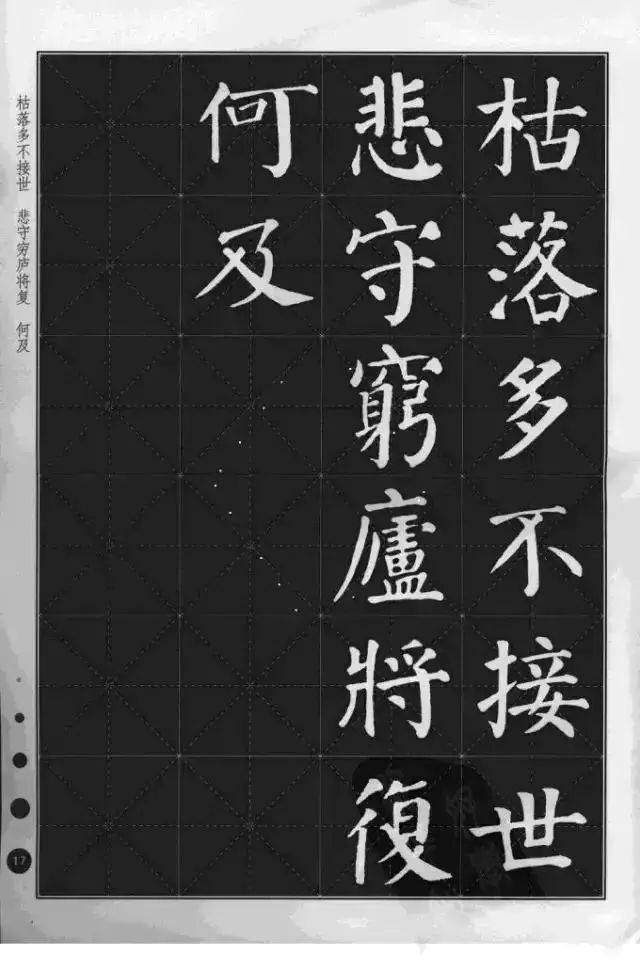 枯落多不接世
悲守窮廬將復
何及
枯落多不接世 悲守穷庐将复 何及
17